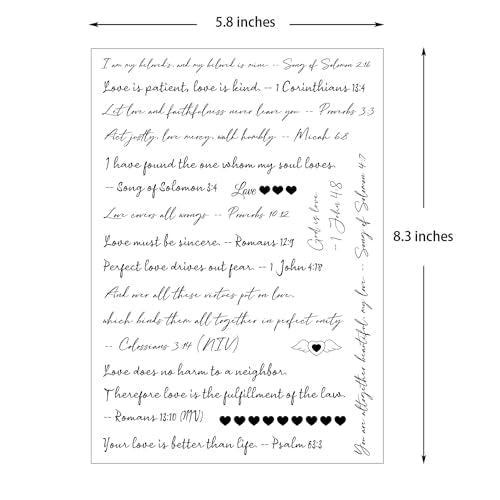 5.8 inches
I am my beloved's, and my beloved is mine. -- Song of Solomon 2:16
Love is patient, love is kind. -- 1 Corinthians 13:4
Let love and faithfulness never leave you -- Proverbs 3:3
Act justly, love mercy, walk humbly -- Micah 6:8
I have found the one whom my soul loves.
-- Song of Solomon 3:4
Love
Love covers all wrongs -- Proverbs 10:12
Love must be sincere. -- Romans 12:9
Perfect love drives out fear. -- 1 John 4:18
And over all these virtues put on love,
which binds them all together in perfect unity
-- Colossians 3:14 (NIV)
Love does no harm to a neighbor.
Therefore love is the fulfillment of the law.
-- Romans 13:10 (NIV)
Your love is better than life. -- Psalm 63:3
God is love
-- 1 John 4:8
You are altogether beautiful, my love -- Song of Solomon 4:7
8.3 inches